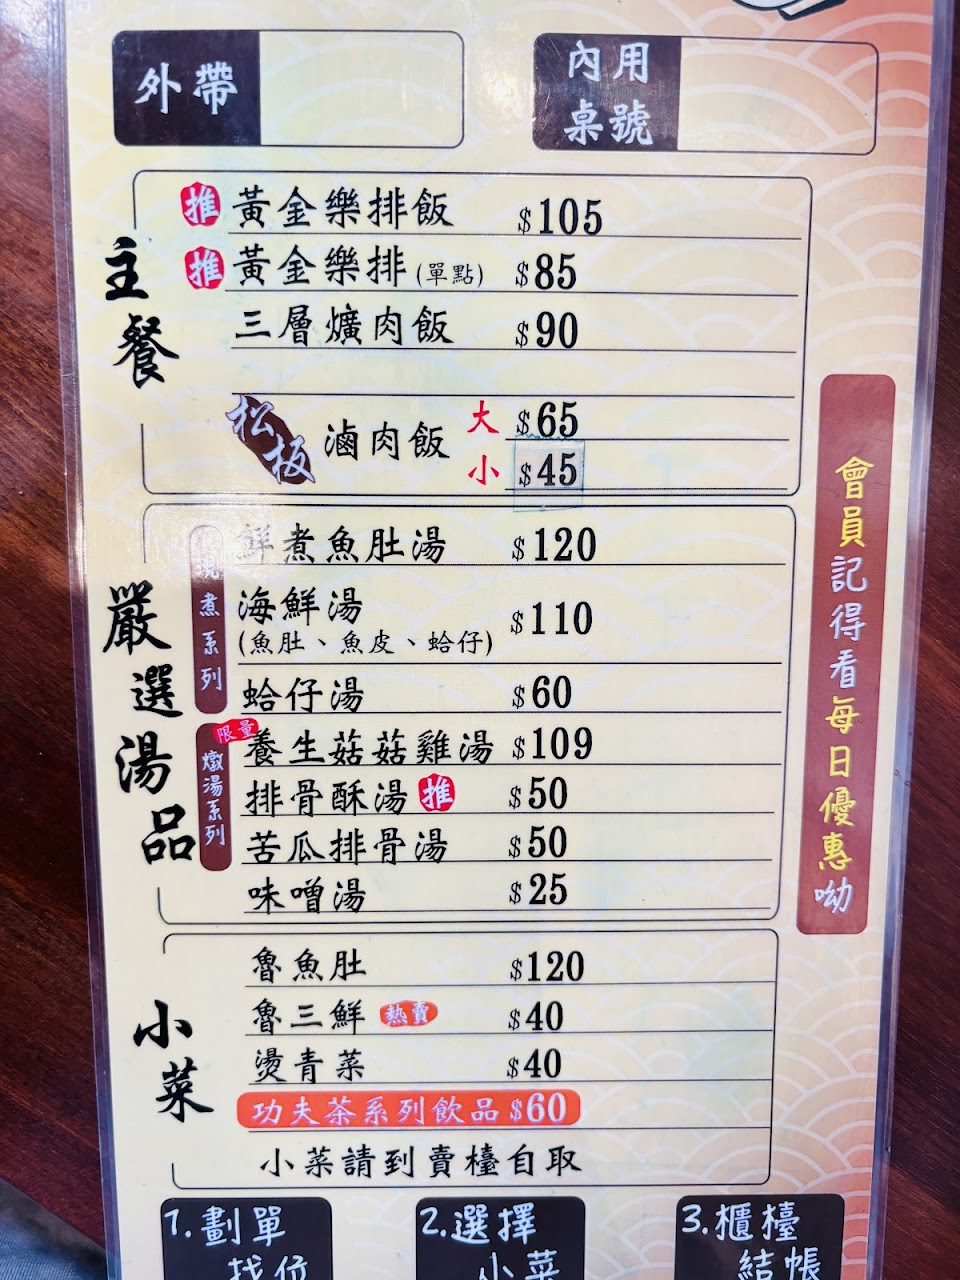 外帶
內用
桌號
主餐
推 黃金樂排飯 $105
推 黃金樂排(單點) $85
三層爌肉飯 $90
松板 滷肉飯 大 $65
小 $45
嚴選湯品
煮系列
鮮煮魚肚湯 $120
海鮮湯 $110
(魚肚、魚皮、蛤仔)
蛤仔湯 $60
燉湯系列
限量 養生菇菇雞湯 $109
排骨酥湯 推 $50
苦瓜排骨湯 $50
味噌湯 $25
小菜
魯魚肚 $120
魯三鮮 熱賣 $40
燙青菜 $40
功夫茶系列飲品 $60
小菜請到賣檯自取
會員記得看每日優惠呦
1.劃單
找位
2.選擇
小菜
3.櫃檯
結帳